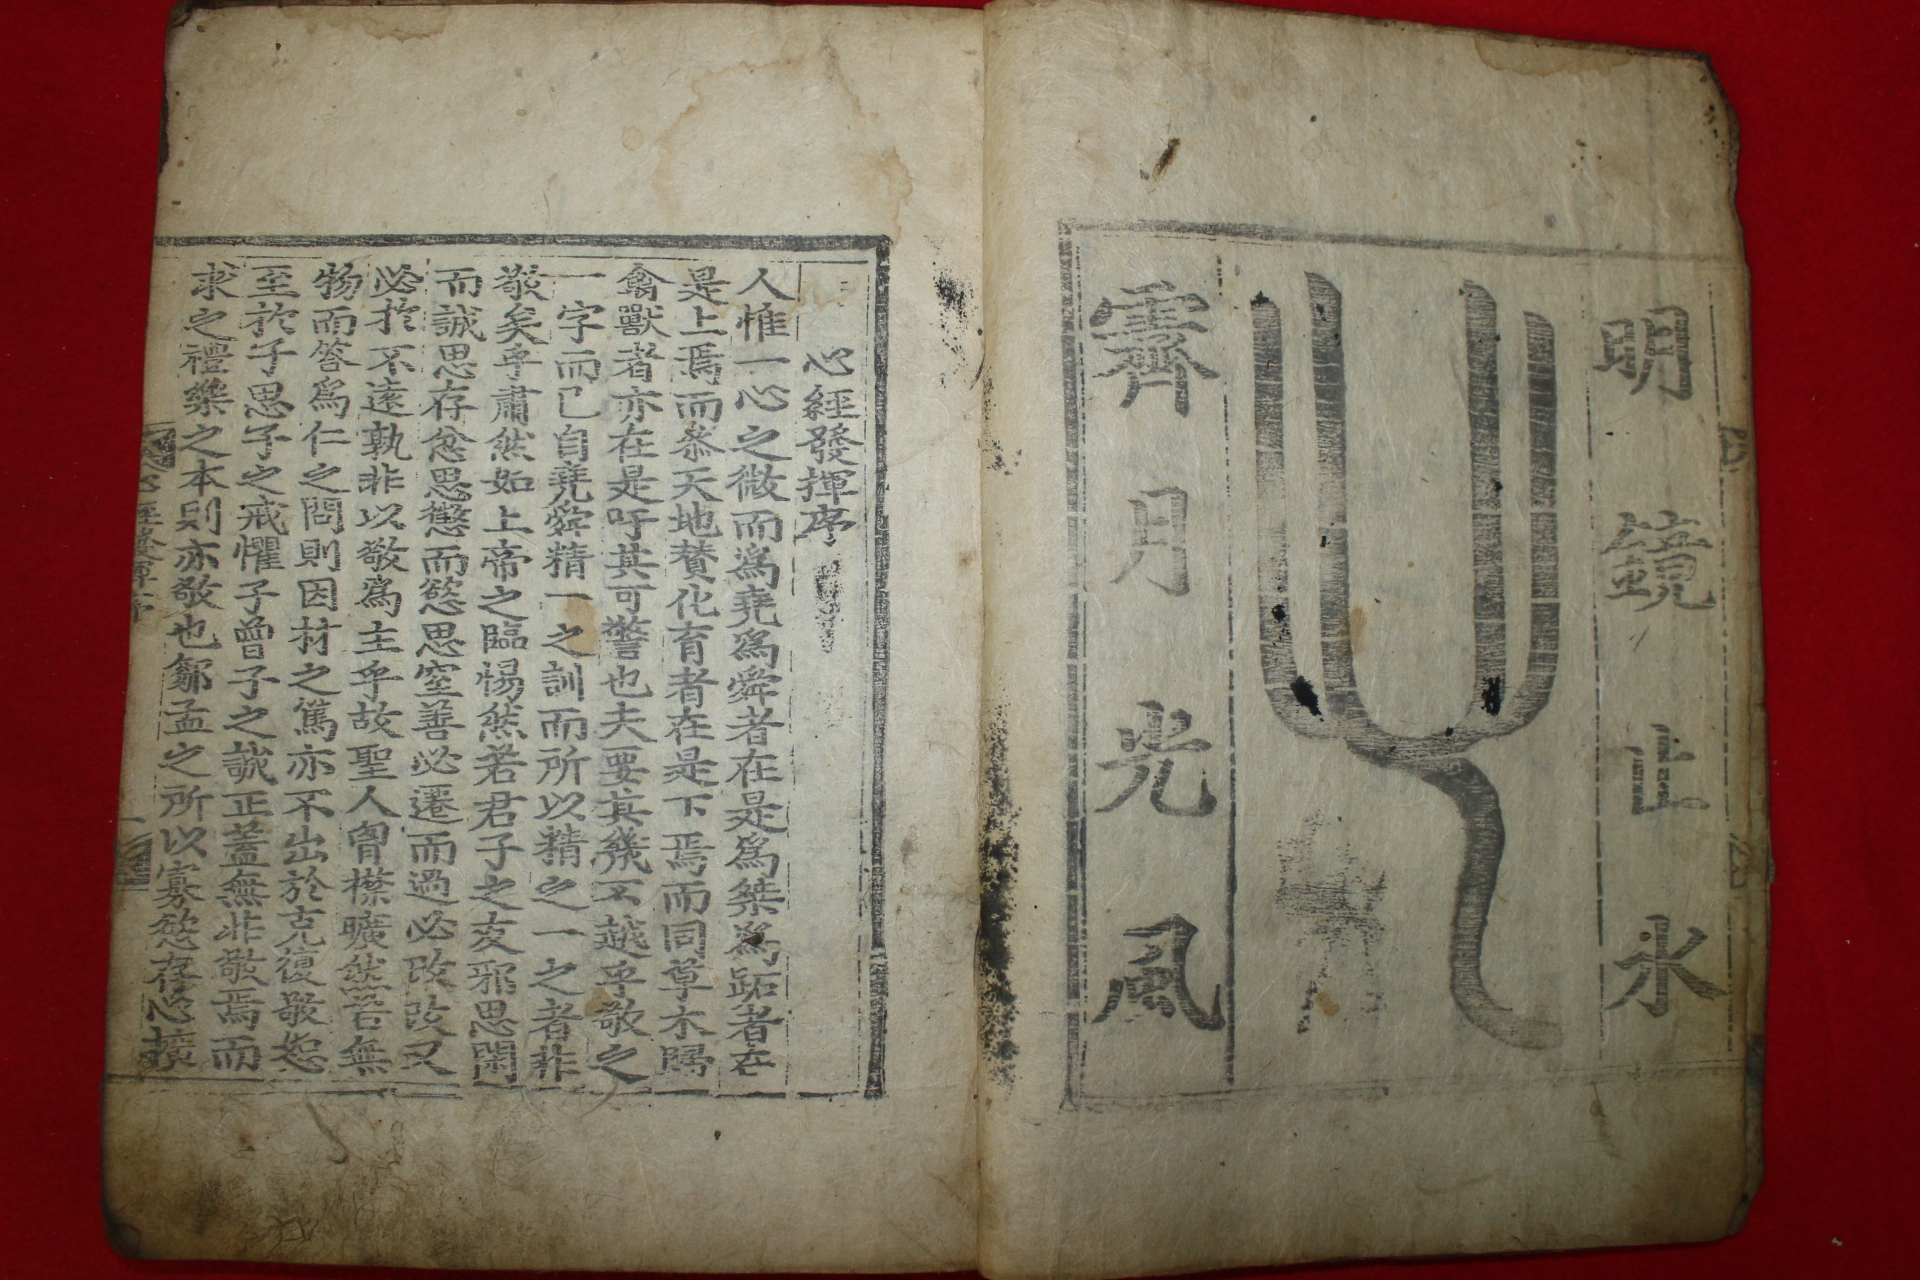 明鏡止水
心
霽月光風
心經發揮序
人惟一心之微而爲堯爲舜者在是爲桀爲跖者在
是上焉而叅天地賛化育者在是下焉而同草木歸
禽獸者亦在是吁其可警也夫要其幾不越乎敬之
一字而已自堯舜精一之訓而所以精之一之者非
敬矣乎肅然如上帝之臨惕然若君子之友邪思閑
而誠思存忿思懲而慾思窒善必遷而過必改改又
必於不遠孰非以敬爲主乎故聖人胷襟曠然若無
物而答爲仁之問則因材之篤亦不出於克復敬恕
至於子思子之戒懼子曾子之誠正盖無非敬焉而
求之禮樂之本則亦敬也鄒孟之所以寡慾存心擴
心經發揮序
一